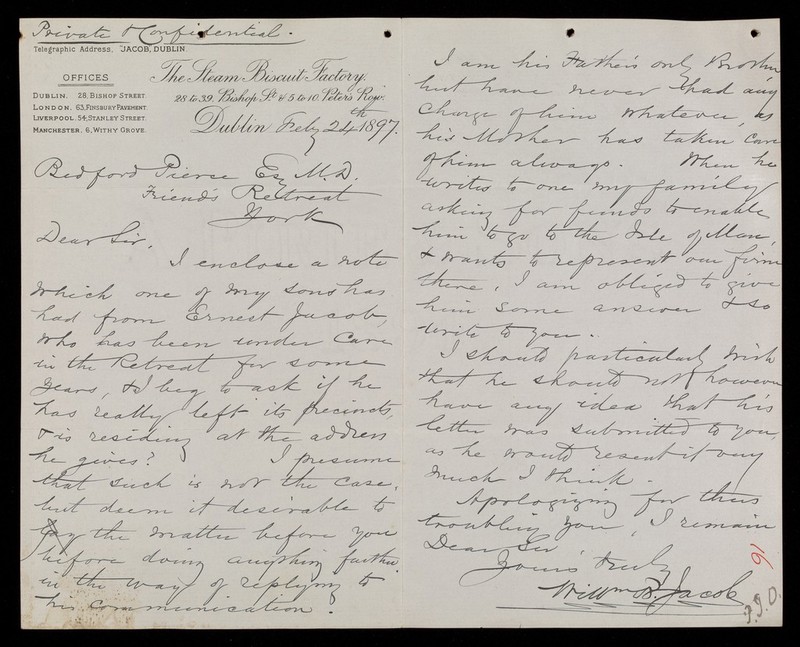 Private & Confidential.
Telegraphic Address, "JACOB, DUBLIN
OFFICES
DUBLIN. 28, BISHOP STREET
LONDON. 63, FINSBURY PAVEMENT
LIVERPOOL. 54, STANLEY STREET
MANCHESTER. 6, WITHY GROVE.
The Steam Biscuit Factory.
28 to 39. Bishop St. & 5 to 10. Peter's Row.
Dublin Feby 24th 1897.
Bedford Pierce Esq M.D.
Friends Retreat
York
Dear Sir,
I enclose a note
which one of my sons has
had from Ernest Jacob,
who has been under care
in the Retreat for some
years, & I beg to ask if he
has really left its precincts,
& is residing at the address
he gives? I presume
that such is not the case,
but deem it desirable to
lay the matter before you
before doing anything further
in the way of replying to
his communication.
I am his Father's only Brother
but have never had any
charge of him whatever, as
his Mother has taken care
of him always. When he
writes to one my family
asking for funds to enable
him to go to the Isle of Man,
& wants to represent our firm
there, I am obliged to give
him some answer & so
write to you.
I should particularly wish
that he should not however
have any idea that his
letter was submitted to you,
as he would resent it very
much I think.
Apologizing for thus
troubling you, I remain
Dear Sir
Yours truly
Willm B. Jacob
91
P.J.O.